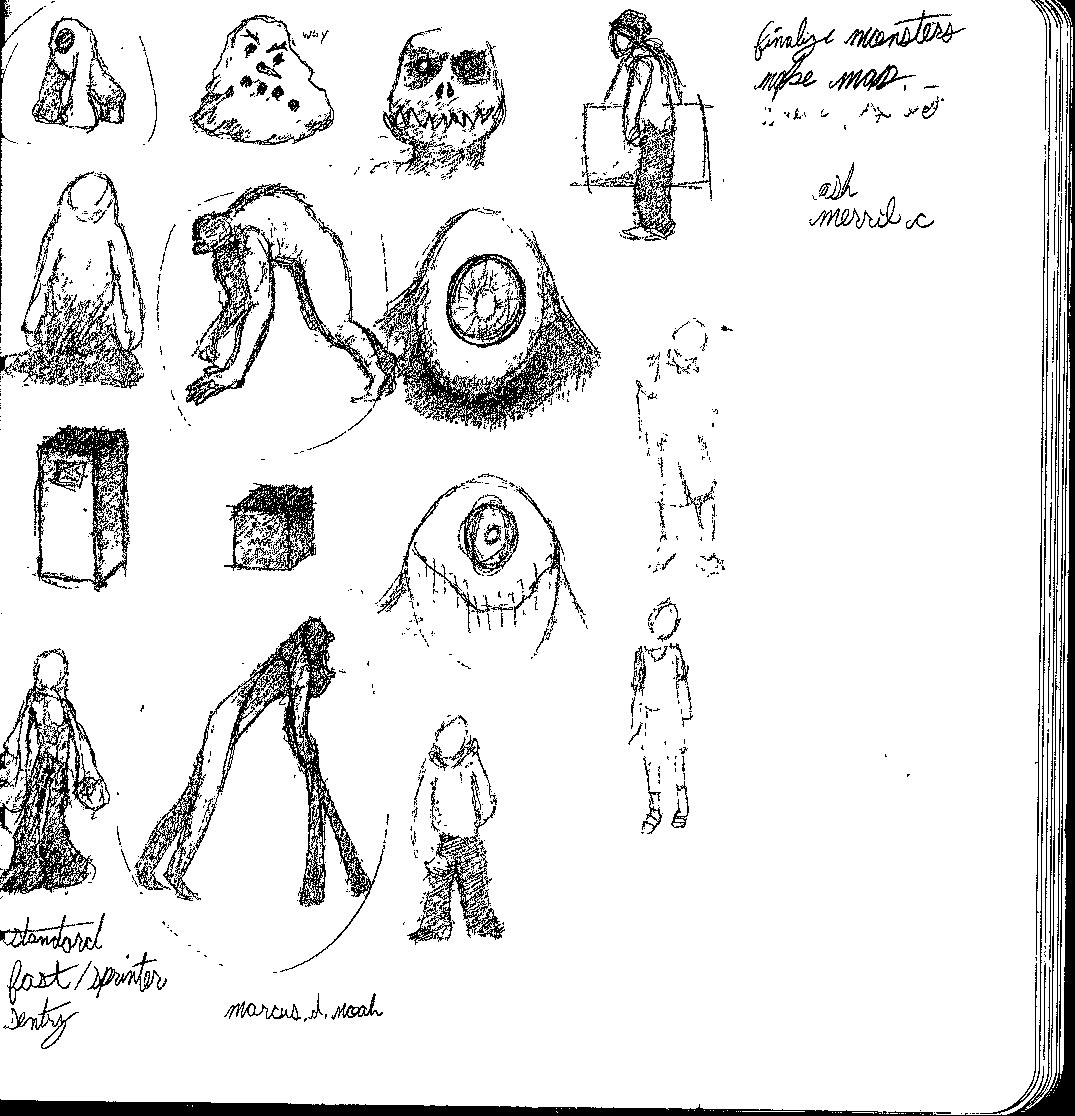 why
finalize monsters
make map.
ash
merril.c
standard
fast/sprinter
sentry
marcus.d.noah